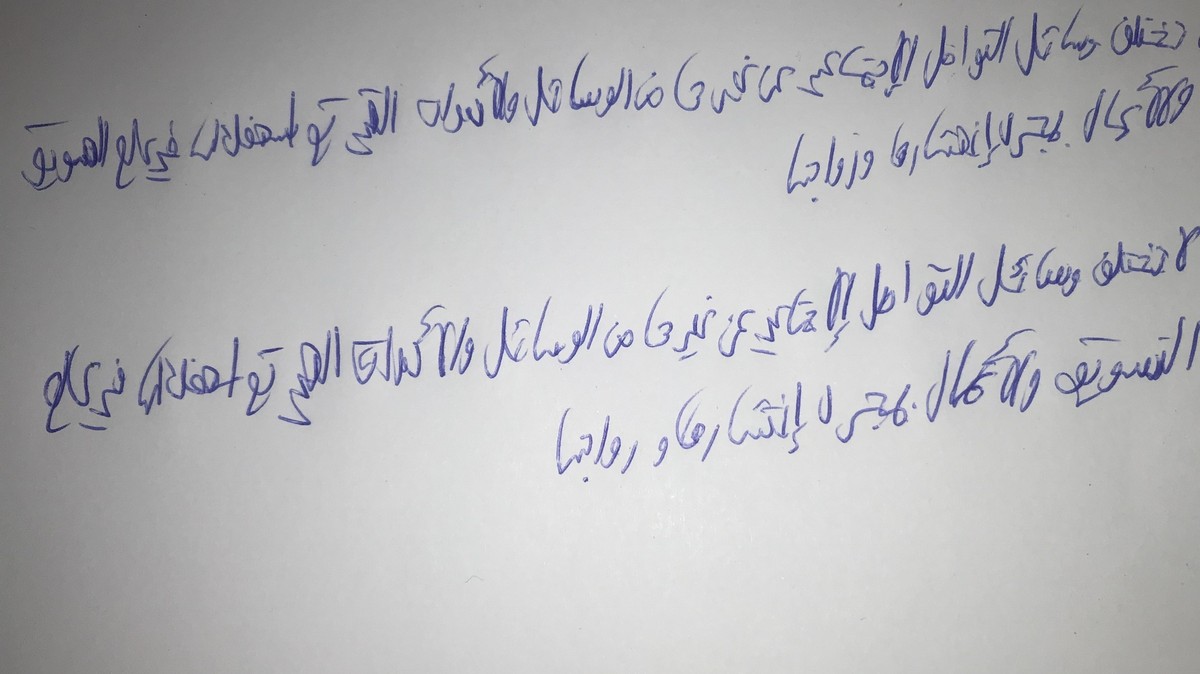 تختلف وسائل التواصل الإجتماعي عن غيرها من الوسائل والأدوات التي تم استغلالها في عالم التسويق
والأعمال بحجم إنتشارها ورواجها
لا تختلف وسائل التواصل الإجتماعي عن غيرها من الوسائل والأدوات التي تم استغلالها في عالم
التسويق والأعمال بحجم إنتشارها ورواجها